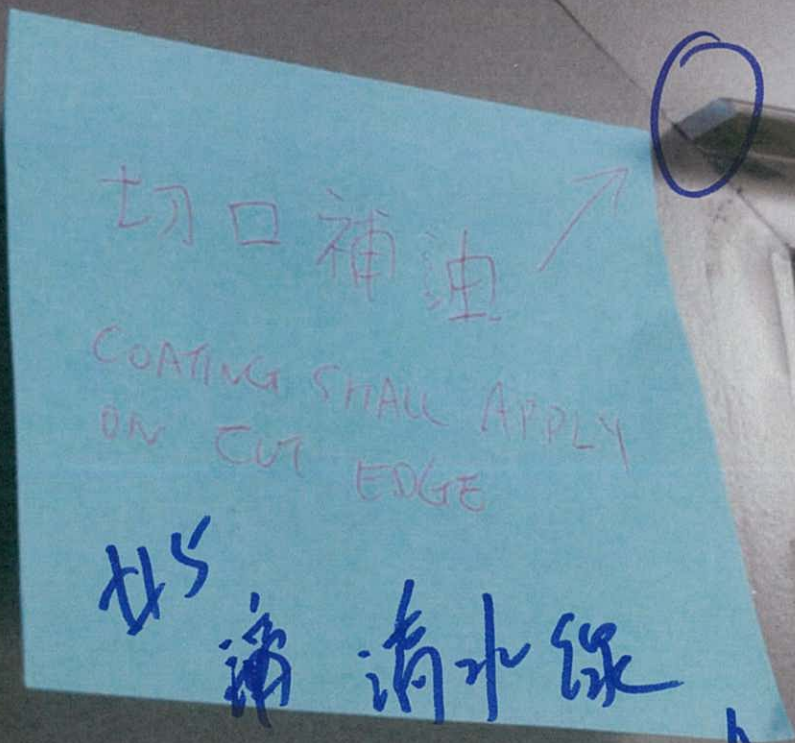 切口補油
COATING SHALL APPLY
ON CUT EDGE
#5
清水線